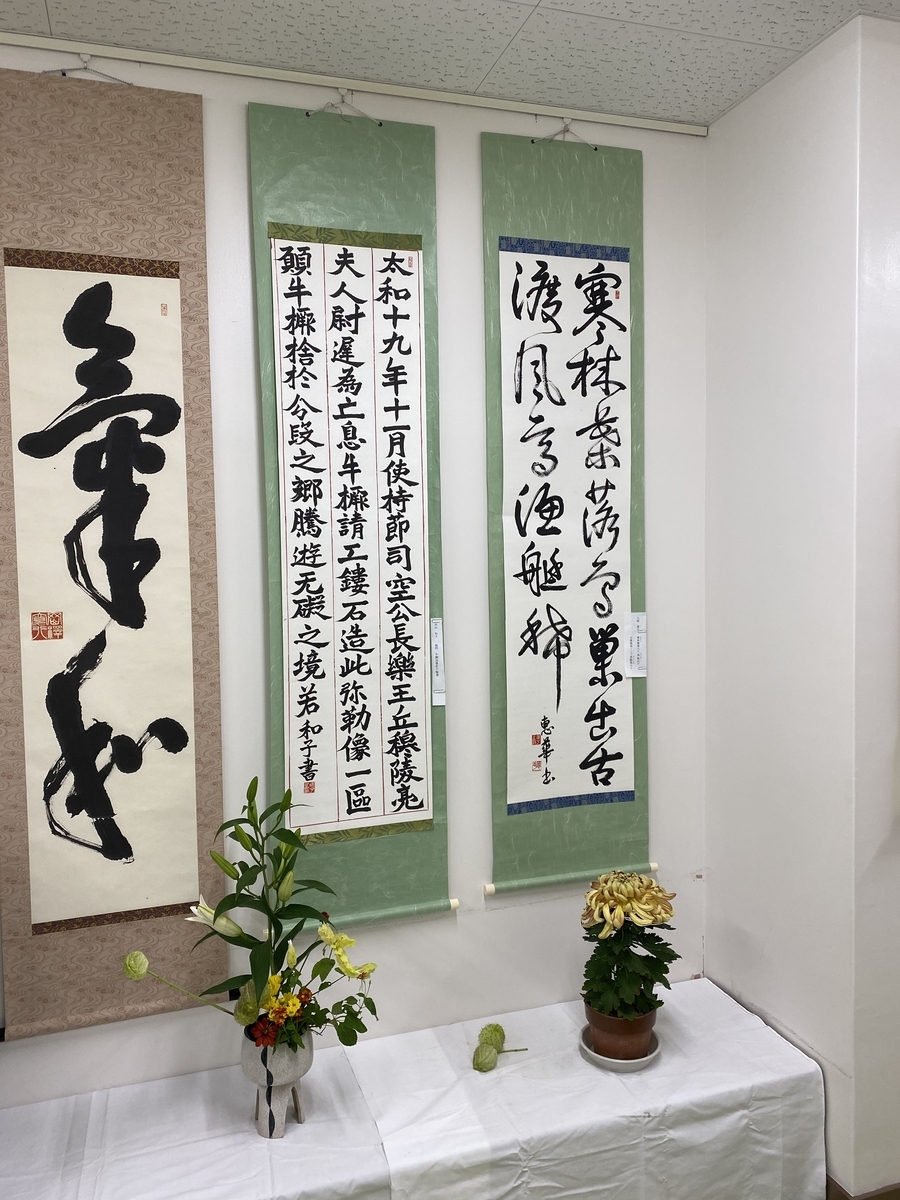 寒林葉落鳥巣出古
渡風高漁艇稀
恵華書
太和十九年十一月使持節司空公長樂王丘穆陵亮
夫人尉遲為亡息牛橛請工鏤石造此弥勒像一區
願牛橛捨於分段之鄉騰遊无礙之境若
和子書
氣和